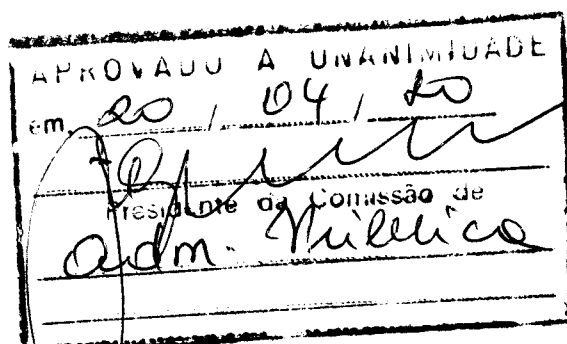 APROVADO A UNANIMIDADE
em 20 / 04 / 20
Presidente da Comissão de
adm. Pública